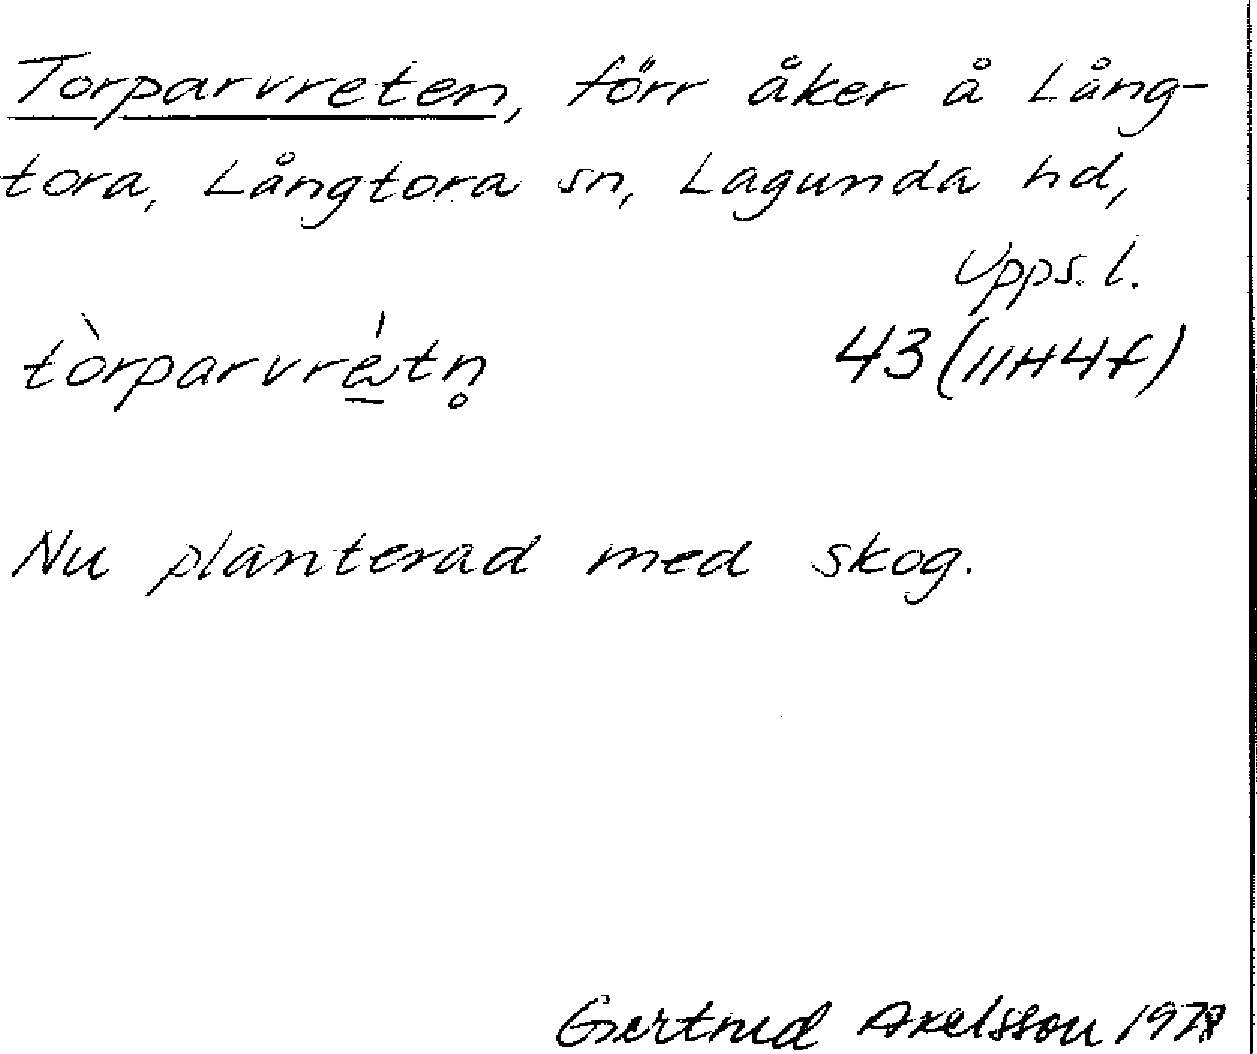 Torparvreten, förr åker å Lång-
tora, Långtora sn, Lagunda hd,
Upps. l.
tòrparvré̱tn̥ 43 (11H4f)
Nu planterad med skog.
Gertrud Axelsson 1978